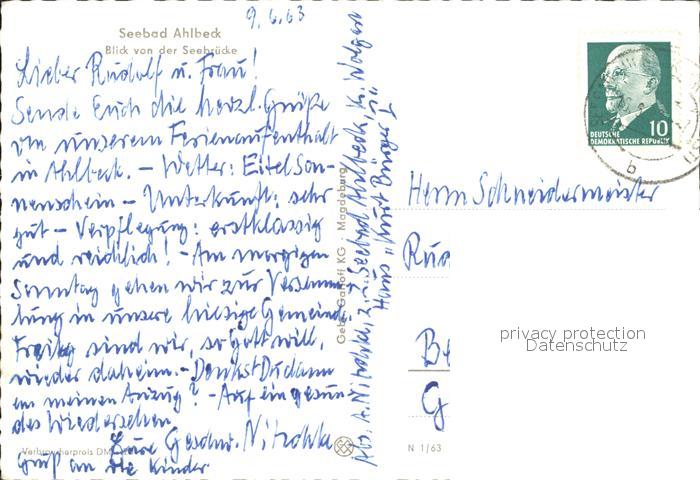 Seebad Ahlbeck
Blick von der Seebrücke
9.6.63
Lieber Rudolf u. Frau!
Sende Euch die herzl. Grüße
von unserem Ferienaufenthalt
in Ahlbeck. – Wetter: Eitel Son-
nenschein – Unterkunft: sehr
gut – Verpflegung: erstklassig
und reichlich! – Am morgigen
Sonntag gehen wir zur Versamm
lung in unsere hiesige Gemeinde.
Freitag sind wir, so Gott will,
wieder daheim. – Denkst Du dann
an meinen Anzug? – Auf ein gesun-
des Wiedersehen
Eure Geschw. Nitzschke
Gruß an die Kinder
Verbraucherpreis DM
Abs. A. Nitzschke, z. Z. Seebad Ahlbeck, Kr. Wolgast
Haus "Kurt Bürger I"
Gebr. Garloff KG · Magdeburg
N 1/63
DEUTSCHE
DEMOKRATISCHE REPUBLIK
10
b
Herrn Schneidermeister
Ru
B
G
privacy protection
Datenschutz